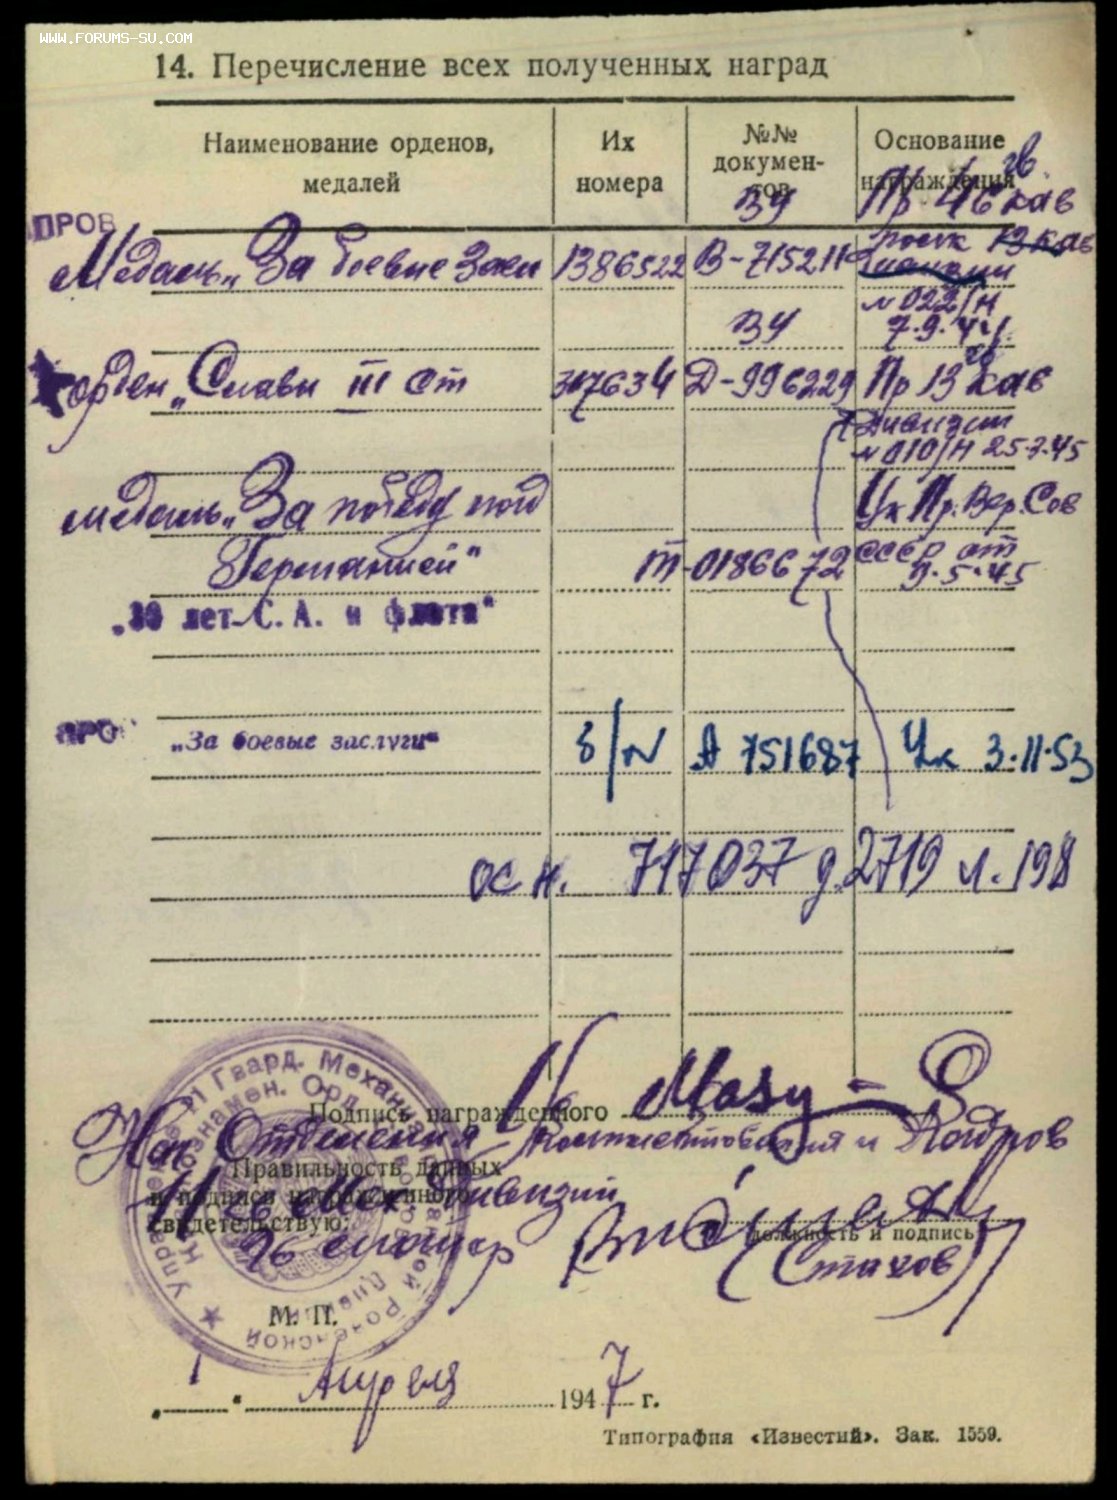 WWW.FORUMS-SU.COM
14. Перечисление всех полученных наград
Наименование орденов, медалей
Их номера
№№ документов
Основание награждения
ПРОВ
ВУ Пр 4 гв. кав
Медаль „За боевые засл 1386522 В-715211 полк 13 кав
дивизии
ВУ № 022/н 7.9.44
орден „Славы III ст 307634 Д-996229 Пр 13 гв кав
дивизии
№ 010/н 25.3.45
медаль „За победу над Ук Пр. Вер. Сов
Германией" Т-0186672 СССР от 9.5.45
„30 лет С. А. и флота"
ПРО
„За боевые заслуги" б/N А 751687 Ук 3.11.53
осн. 717037 д. 2719 л. 198
Подпись награжденного
Нач Отделения Комплектования и Кадров
Правильность данных
и подписи награжденного
11 гв Мех Дивизии
свидетельствую:
должность и подпись
(Стахов)
М. П.
1 Апреля 1947 г.
Типография «Известий». Зак. 1559.